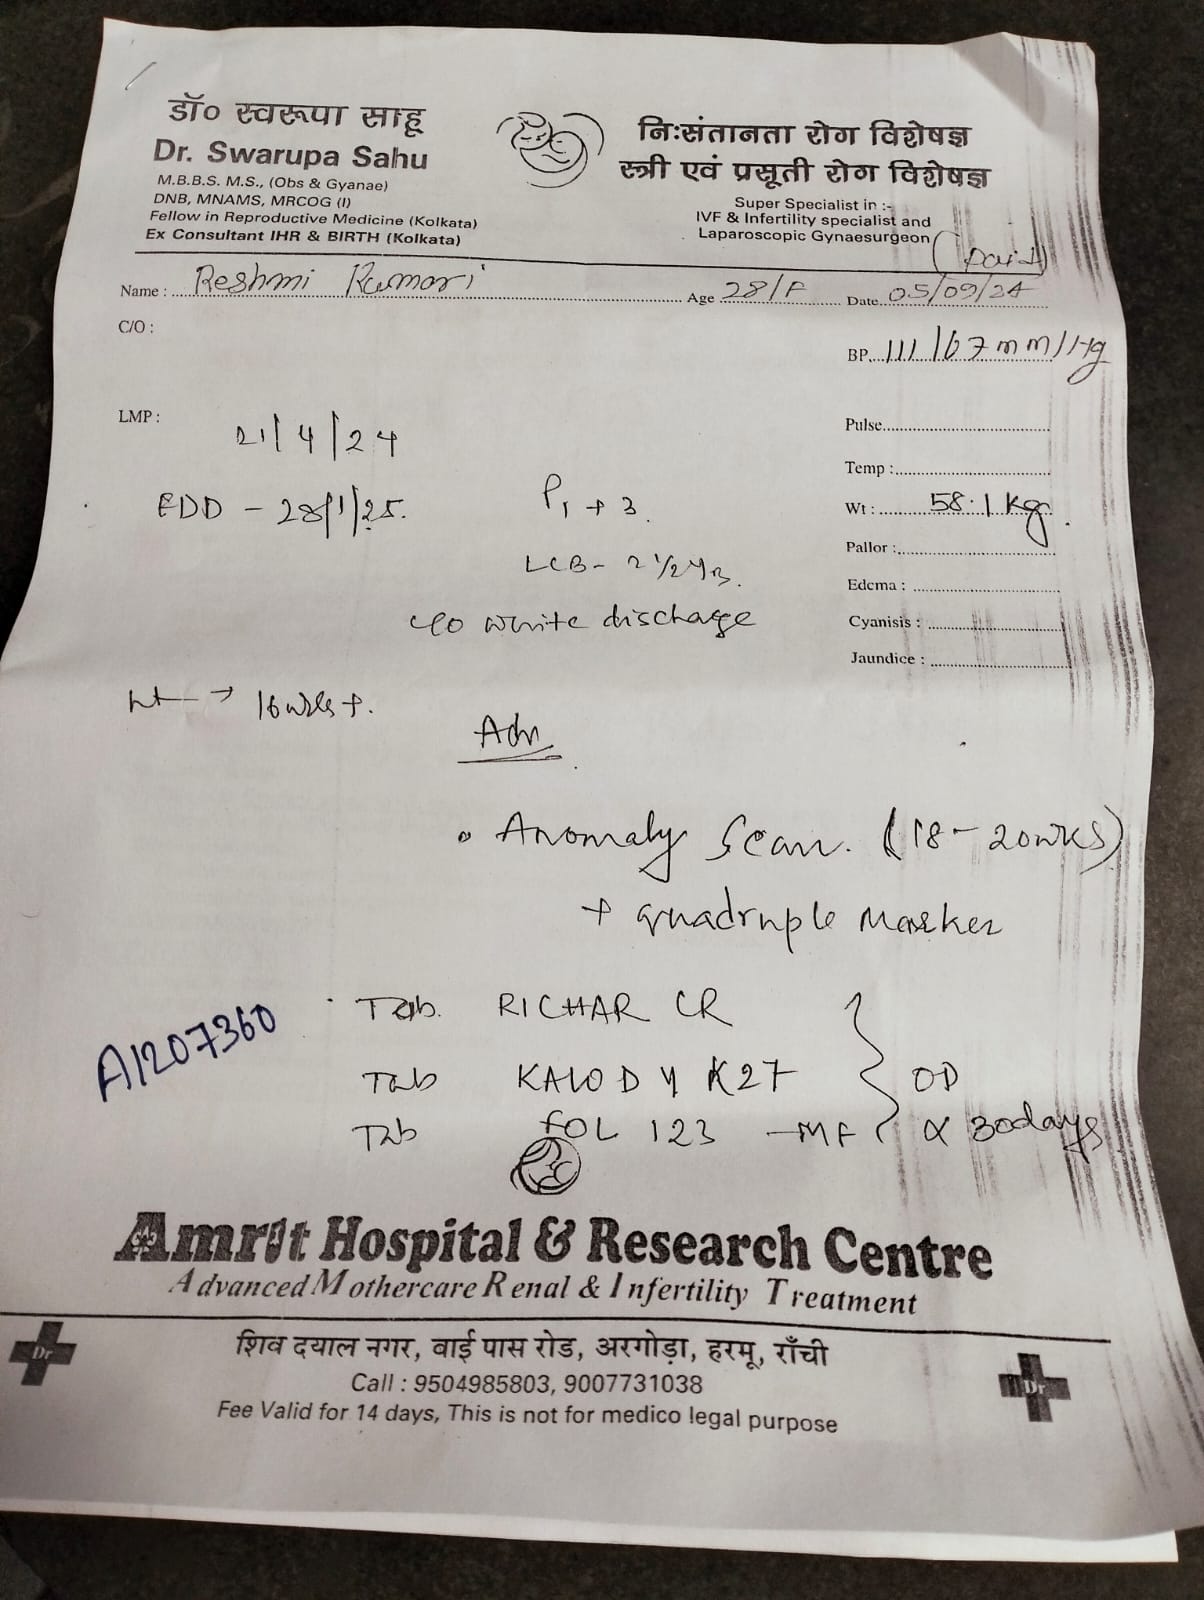 डॉ० स्वरूपा साहू
Dr. Swarupa Sahu
M.B.B.S. M.S., (Obs & Gyanae)
DNB, MNAMS, MRCOG (I)
Fellow in Reproductive Medicine (Kolkata)
Ex Consultant IHR & BIRTH (Kolkata)
निःसंतानता रोग विशेषज्ञ
स्त्री एवं प्रसूती रोग विशेषज्ञ
Super Specialist in :-
IVF & Infertility specialist and
Laparoscopic Gynaesurgeon
(Paid)
Name : Reshmi Kumari Age 28/F Date 05/09/24
C/O :
BP 111/67 mm/Hg
LMP : 21/4/24
Pulse
Temp :
EDD - 28/1/25. P1+3.
Wt : 58.1 kg.
LCB- 2 1/2 yrs.
Pallor :
Edema :
c/o white discharge
Cyanisis :
Jaundice :
→ 16 wks+.
Adv
• Anomaly Scan. (18-20wks)
+ quadruple Marker
Tab. RICHAR CR
A1207360
Tab KALODY K27 } OD
Tab FOL 123 -MF x 30days
Amrit Hospital & Research Centre
Advanced Mothercare Renal & Infertility Treatment
शिव दयाल नगर, वाई पास रोड, अरगोड़ा, हरमू, राँची
Call : 9504985803, 9007731038
Fee Valid for 14 days, This is not for medico legal purpose
Dr
Dr